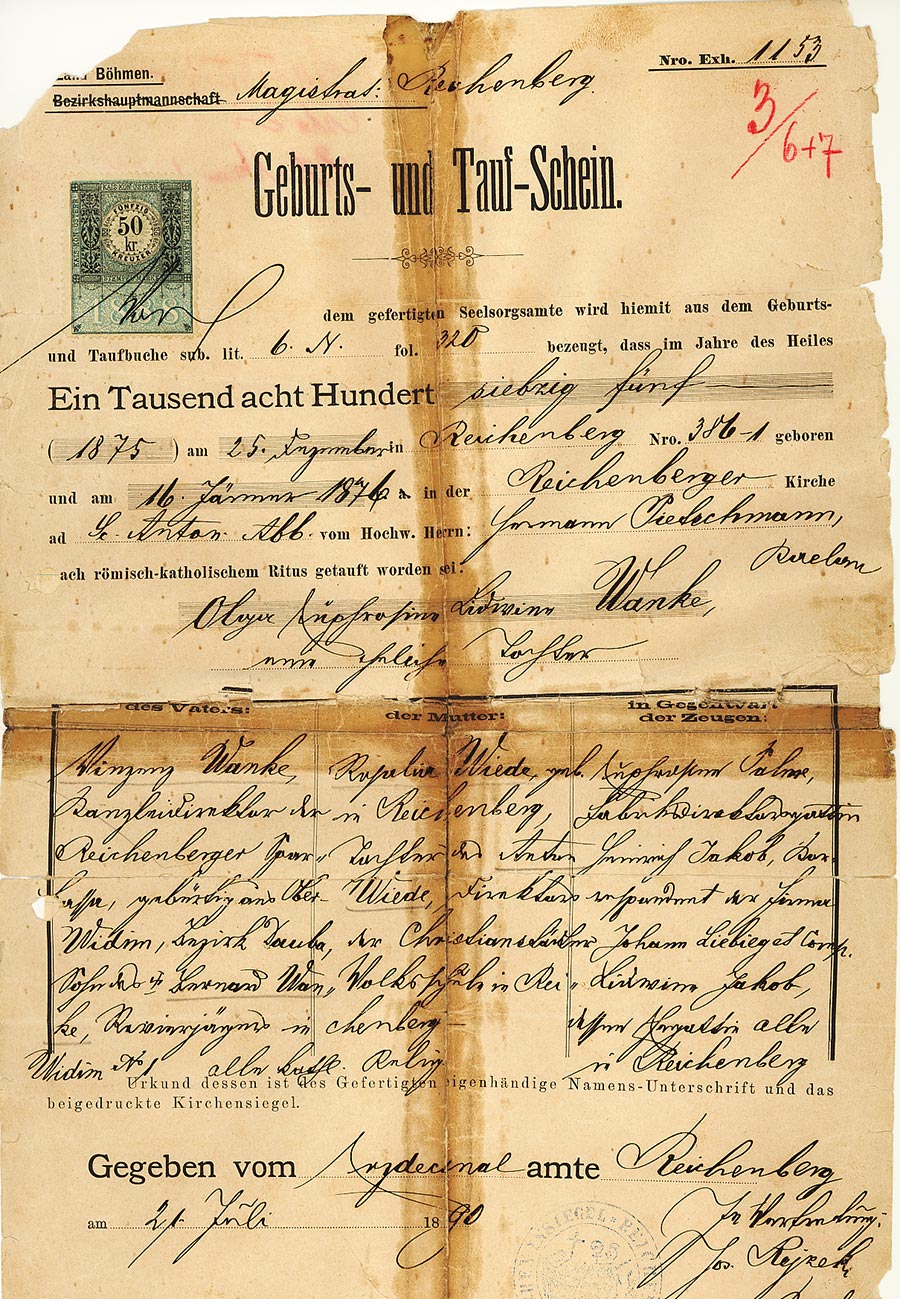 Land Böhmen.
Nro. Exh. 1153
Bezirkshauptmannschaft Magistrat: Reichenberg.
3/6+7
Geburts- und Tauf-Schein.
KAIS. KÖN. ÖSTERR.
FÜNFZIG
50
kr.
KREUZER
STEMPEL MARKE
1888
dem gefertigten Seelsorgsamte wird hiemit aus dem Geburts-
und Taufbuche sub. lit. 6. N. fol. 320 bezeugt, dass im Jahre des Heiles
Ein Tausend acht Hundert siebzig fünf
(1875) am 25. Dezember in Reichenberg Nro. 386-1 geboren
und am 16. Jänner 1876 a. in der Reichenberger Kirche
ad St. Anton. Abb. vom Hochw. Herrn: Hermann Pietschmann,
Kaplan
ach römisch-katholischem Ritus getauft worden sei:
Olga Euphrosine Lidwine Wanke,
eine eheliche Tochter
des Vaters: der Mutter: in Gegenwart
der Zeugen:
Vinzenz Wanke, Rosalia Wiede, geb. Euphrosine Palme,
Kanzleidirektor der in Reichenberg, Fabriksdirektorsgattin
Reichenberger Spar- Tochter des Anton Heinrich Jakob, Kor-
kassa, gebürtig aus Ober- Wiede, Direktors respondent der Firma
Widim, Bezirk Dauba, der Christiansstädter Johann Liebieg et Comp.
Sohn des † Bernard Wan- Volksschule in Rei- Lidwine Jakob,
ke, Revierjägers in chenberg dessen Ehegattin alle
Widim No 1 alle kathl. Relig. in Reichenberg
Urkund dessen ist des Gefertigten eigenhändige Namens-Unterschrift und das
beigedruckte Kirchensiegel.
Gegeben vom Erzdecanal amte Reichenberg
am 21. Juli 1890 In Vertretung:
Jos. Rejzek